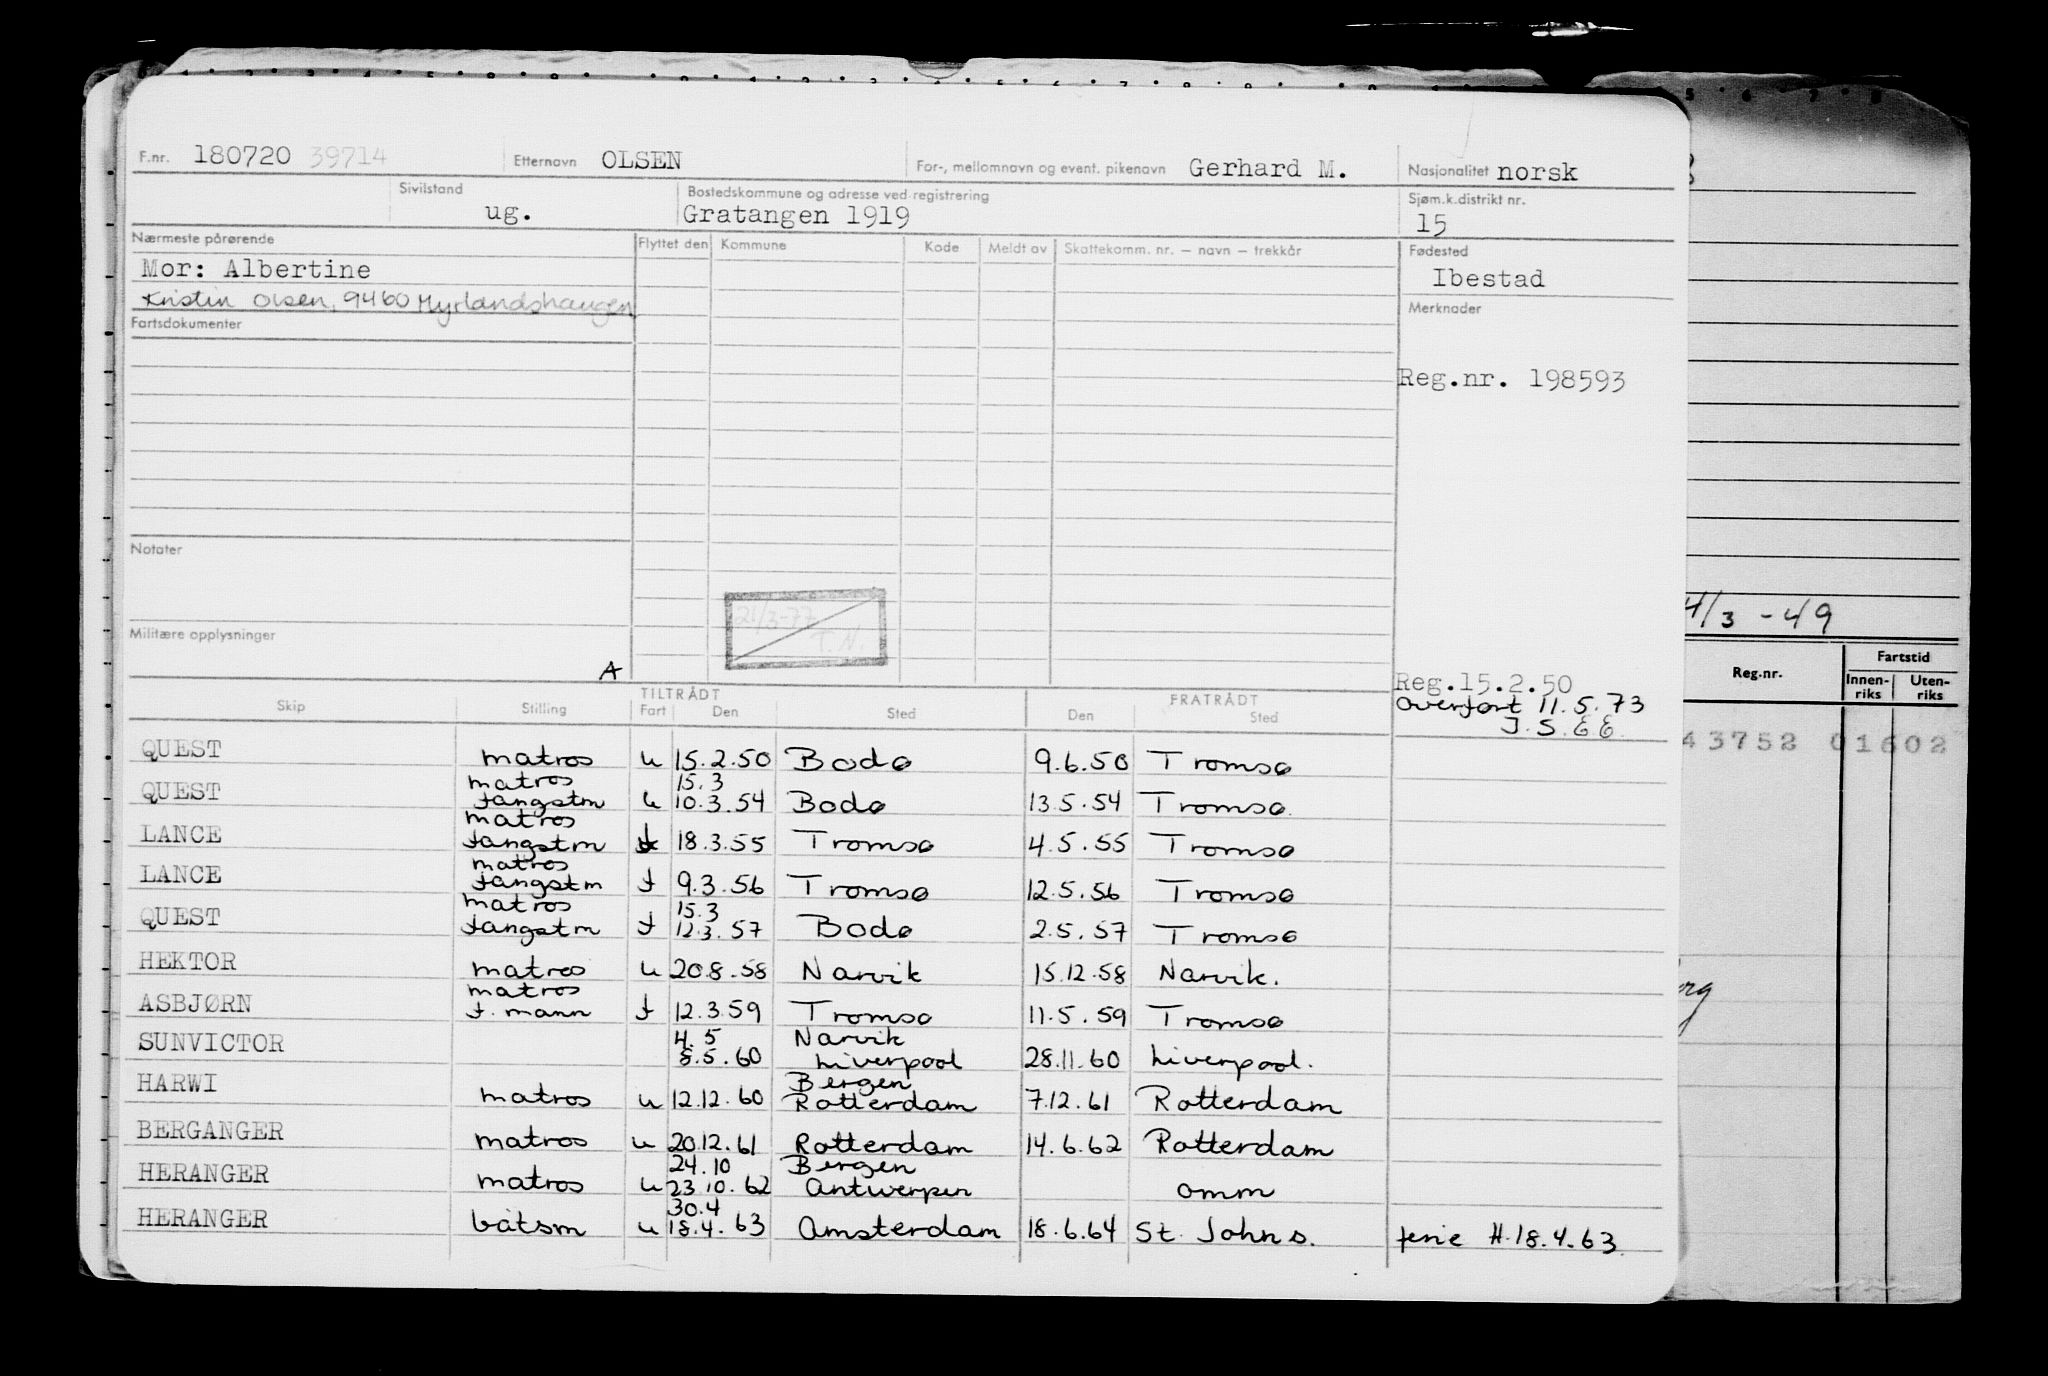 F.nr. 180720 39714 Etternavn OLSEN For-, mellomnavn og event. pikenavn Gerhard M. Nasjonalitet norsk
Sivilstand ug. Bostedskommune og adresse ved registrering Gratangen 1919 Sjøm.k.distrikt nr. 15
Nærmeste pårørende Flyttet den Kommune Kode Meldt av Skattekomm. nr. – navn – trekkår Fødested
Mor: Albertine Ibestad
Kristin Olsen, 9460 Myrlandshaugen Merknader
Fartsdokumenter
Reg.nr. 198593
Notater
21/3-77
T.N.
4/3 -49
Militære opplysninger
A
Reg.nr. Fartstid
Innen-riks Uten-riks
Reg.15.2.50
Overført 11.5.73
J.S.EE.
TILTRÅDT FRATRÅDT
Skip Stilling Fart Den Sted Den Sted
43752 01602
QUEST matros u 15.2.50 Bodø 9.6.50 Tromsø
matros 15.3
QUEST fangstm u 10.3.54 Bodø 13.5.54 Tromsø.
matros
LANCE fangstm f 18.3.55 Tromsø 4.5.55 Tromsø
matros
LANCE fangstm f 9.3.56 Tromsø 12.5.56 Tromsø
matros 15.3
QUEST fangstm f 12.3.57 Bodø 2.5.57 Tromsø
HEKTOR matros u 20.8.58 Narvik 15.12.58 Narvik.
matros
ASBJØRN f. mann f 12.3.59 Tromsø 11.5.59 Tromsø
4.5 Narvik
SUNVICTOR 8.5.60 Liverpool 28.11.60 Liverpool.
Bergen
HARWI matros u 12.12.60 Rotterdam 7.12.61 Rotterdam
BERGANGER matros u 20.12.61 Rotterdam 14.6.62 Rotterdam
24.10 Bergen
HERANGER matros u 23.10.62 Antwerpen omm
30.4
HERANGER båtsm u 18.4.63 Amsterdam 18.6.64 St. Johns. ferie H.18.4.63